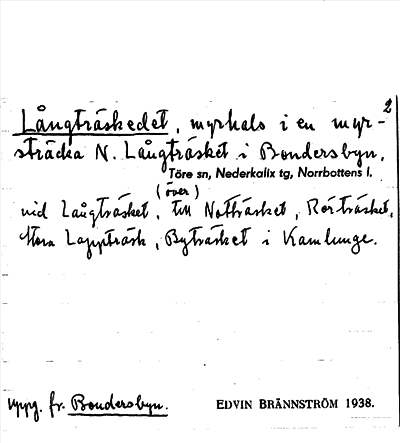 2
Långträskedet, myrhals i en myr-
sträcka N. Långträsket i Bondersbyn,
Töre sn, Nederkalix tg, Norrbottens l.
(över)
vid Långträsket, till Notträsket, Rörträsket,
Stora Lappträsk, Byträsket i Kamlunge.
uppg. fr. Bondersbyn.
EDVIN BRÄNNSTRÖM 1938.